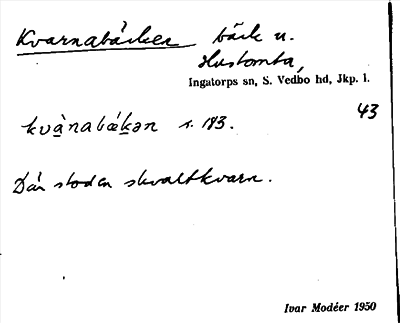 Kvarnabäcken bäck n.
Hustomta,
Ingatorps sn, S. Vedbo hd, Jkp. l.
43
kvànabǽkən s. 183.
Där stod en skvaltkvarn.
Ivar Modéer 1950